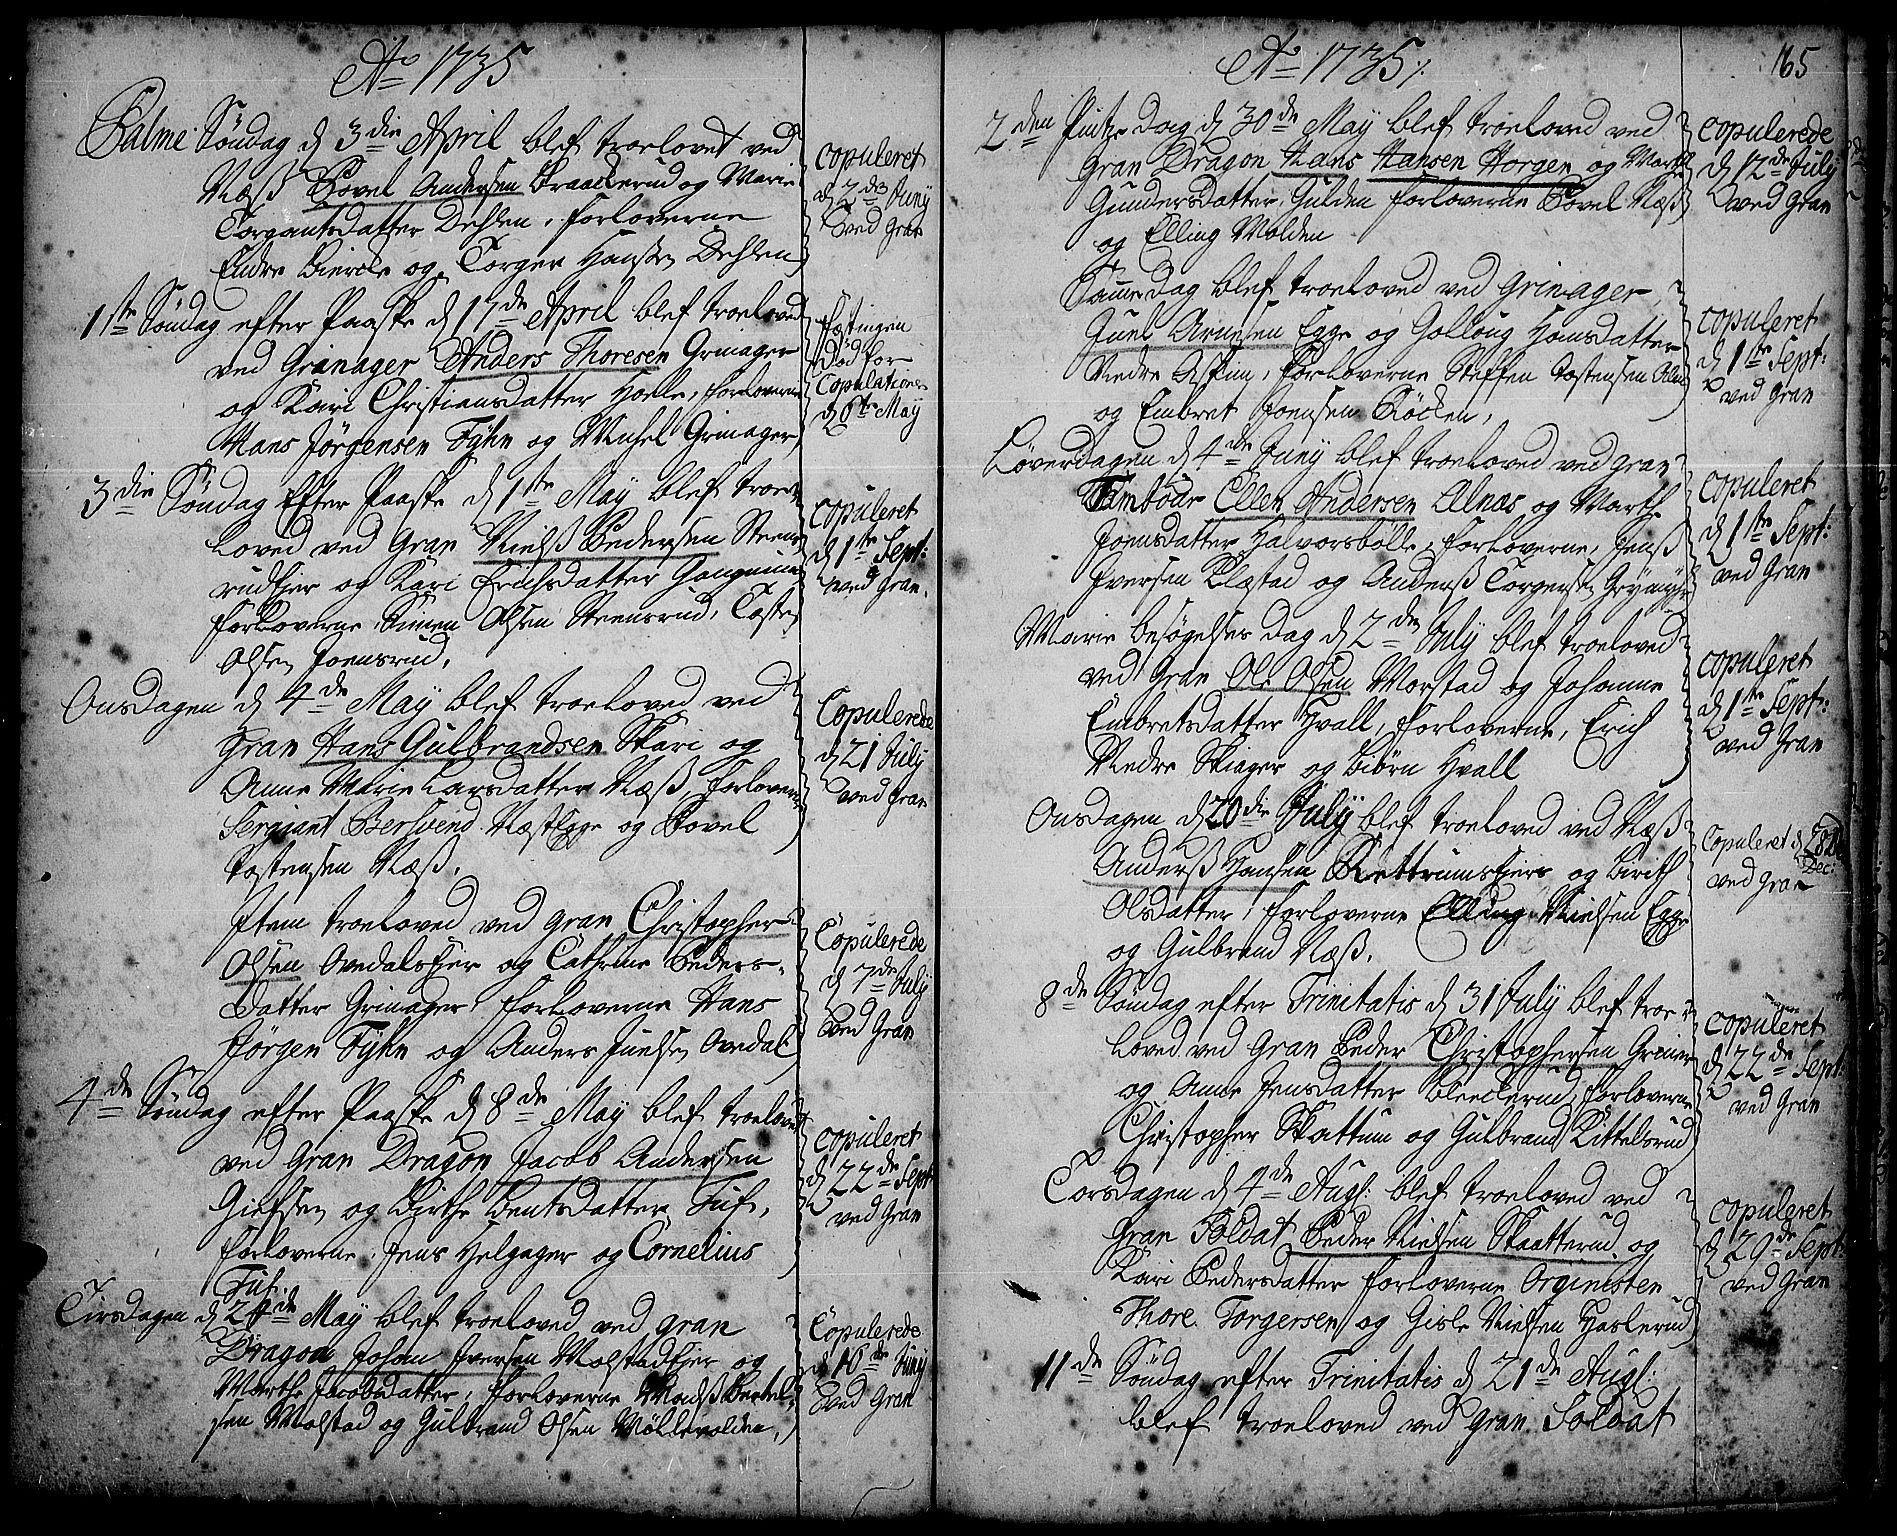 Ao 1735
Palme Søndag d 3die April blef troelovet ved
Næss Povel Andersen Braackerud og Marie
Torgantsdatter Dehlen, forloverne
Endre Biercke og Torger Hansen Dehlen
copuleret
d 2den Juny
ved Gran
1ste Søndag efter Paaske d 17de April blef troeloved
ved Grinager Anders Thoresen Grinager
og Kari Christiansdatter Horle, forloverne
Hans Jørgensen Fyhn og Michel Grinager
Fæstingen
død for
Copulationen
d 6te May
3die Søndag Efter Paaske d 1ste May blef troe-
loved ved Gran Nielss Pedersen Steens-
rudejer og Kari Erichsdatter
forloverne Simen Olsen Steensrud, Tosten
Olsen Joensrud.
Copuleret
d 1ste Sept:
ved Gran.
Onsdagen d 4de May blef troeloved ved
Gran Hans Gulbrandsen Skari og
Anne Marie Larsdatter Næss, forloverne
Sergiant Bersvend Næstegge og Povel
Tostensen Næss.
Copulerede
d 21 July
ved Gran
Item troeloved ved Gran Christopher
Olsen Ovedalsejer og Cathrine Peders-
datter Grinager, forloverne Hans
Jørgen Fyhn og Anders Juelsen Ovedal
Copulerede
d 7de July
ved Gran
4de Søndag efter Paaske d 8de May blef troeloved
ved Gran Dragon Jacob Andersen
Giefsen og Birthe Bentsdatter Tuf,
forloverne Jens Helgager og Cornelius
Tuf.
copuleret
d 22de Sept
ved Gran
Tirsdagen d 24de May blef troeloved ved Gran
Dragon Johan Iversen Molstadejer og
Marthe Jacobsdatter, forloverne Madss Bertel-
sen Molstad og Gulbrand Olsen Møllevolden,
Copulerede
d 16de Juny
ved Gran
Ao 1735
165
2den Pintze dag d 30de May blef troeloved ved
Gran Dragon Hans Hansen Horgen og Marthe
Gundersdatter Gulden forloverne Povel Næss
og Elling Molden
copulerede
d 12de July
ved Gran
Samme dag blef troeloved ved Grinager
Juel Arnesen Egge og Gollaug Hansdatter
Nedre Askim, forloverne Steffen Tostensen
og Embret Joensen Røcken,
copuleret
d 1ste Sept:
ved Gran
Løverdagen d 4de Juny blef troeloved ved Gran
Tambour Ellen Andersen Alnæs og Marthe
Joensdatter Halvorsbølle, forloverne, Jenss
Iversen Blæstad og Anderss Torgersen Grymyhr
copuleret
d 1ste Sept:
ved Gran
Marie besøgelses dag d 2den July blef troeloved
ved Gran Ole Olsen Morstad og Johanne
Embretsdatter Hvall, forloverne, Erich
Nedre Skiager og Biørn Hvall
copuleret
d 1ste Sept:
ved Gran
Onsdagen d 20die July blef troeloved ved Næss
Anderss Hansen Rettrumsejer og Birith
Olsdatter, forloverne Elling Nielsen Egge
og Gulbrand Næss.
Copuleret d 28de
Dec:
ved Gran
8de Søndag efter Trinitatis d 31 July blef troe-
loved ved Gran Peder Christophersen
og Anne Jensdatter Bleclerud, forloverne
Christopher Skattum og Gulbrand Kittelsrud
copuleret
d 22de Sept:
ved Gran
Torsdagen d 4de Aug: blef troeloved ved
Gran Soldat Peder Nielsen Skaatterud og
Kari Pedersdatter forloverne Orginisten
Thore Torgersen og Gisle Nielsen Haslerud
copuleret
d 29de Sept:
ved Gran
11de Søndag efter Trinitatis d 21de Aug:
blef troeloved ved Gran Soldat